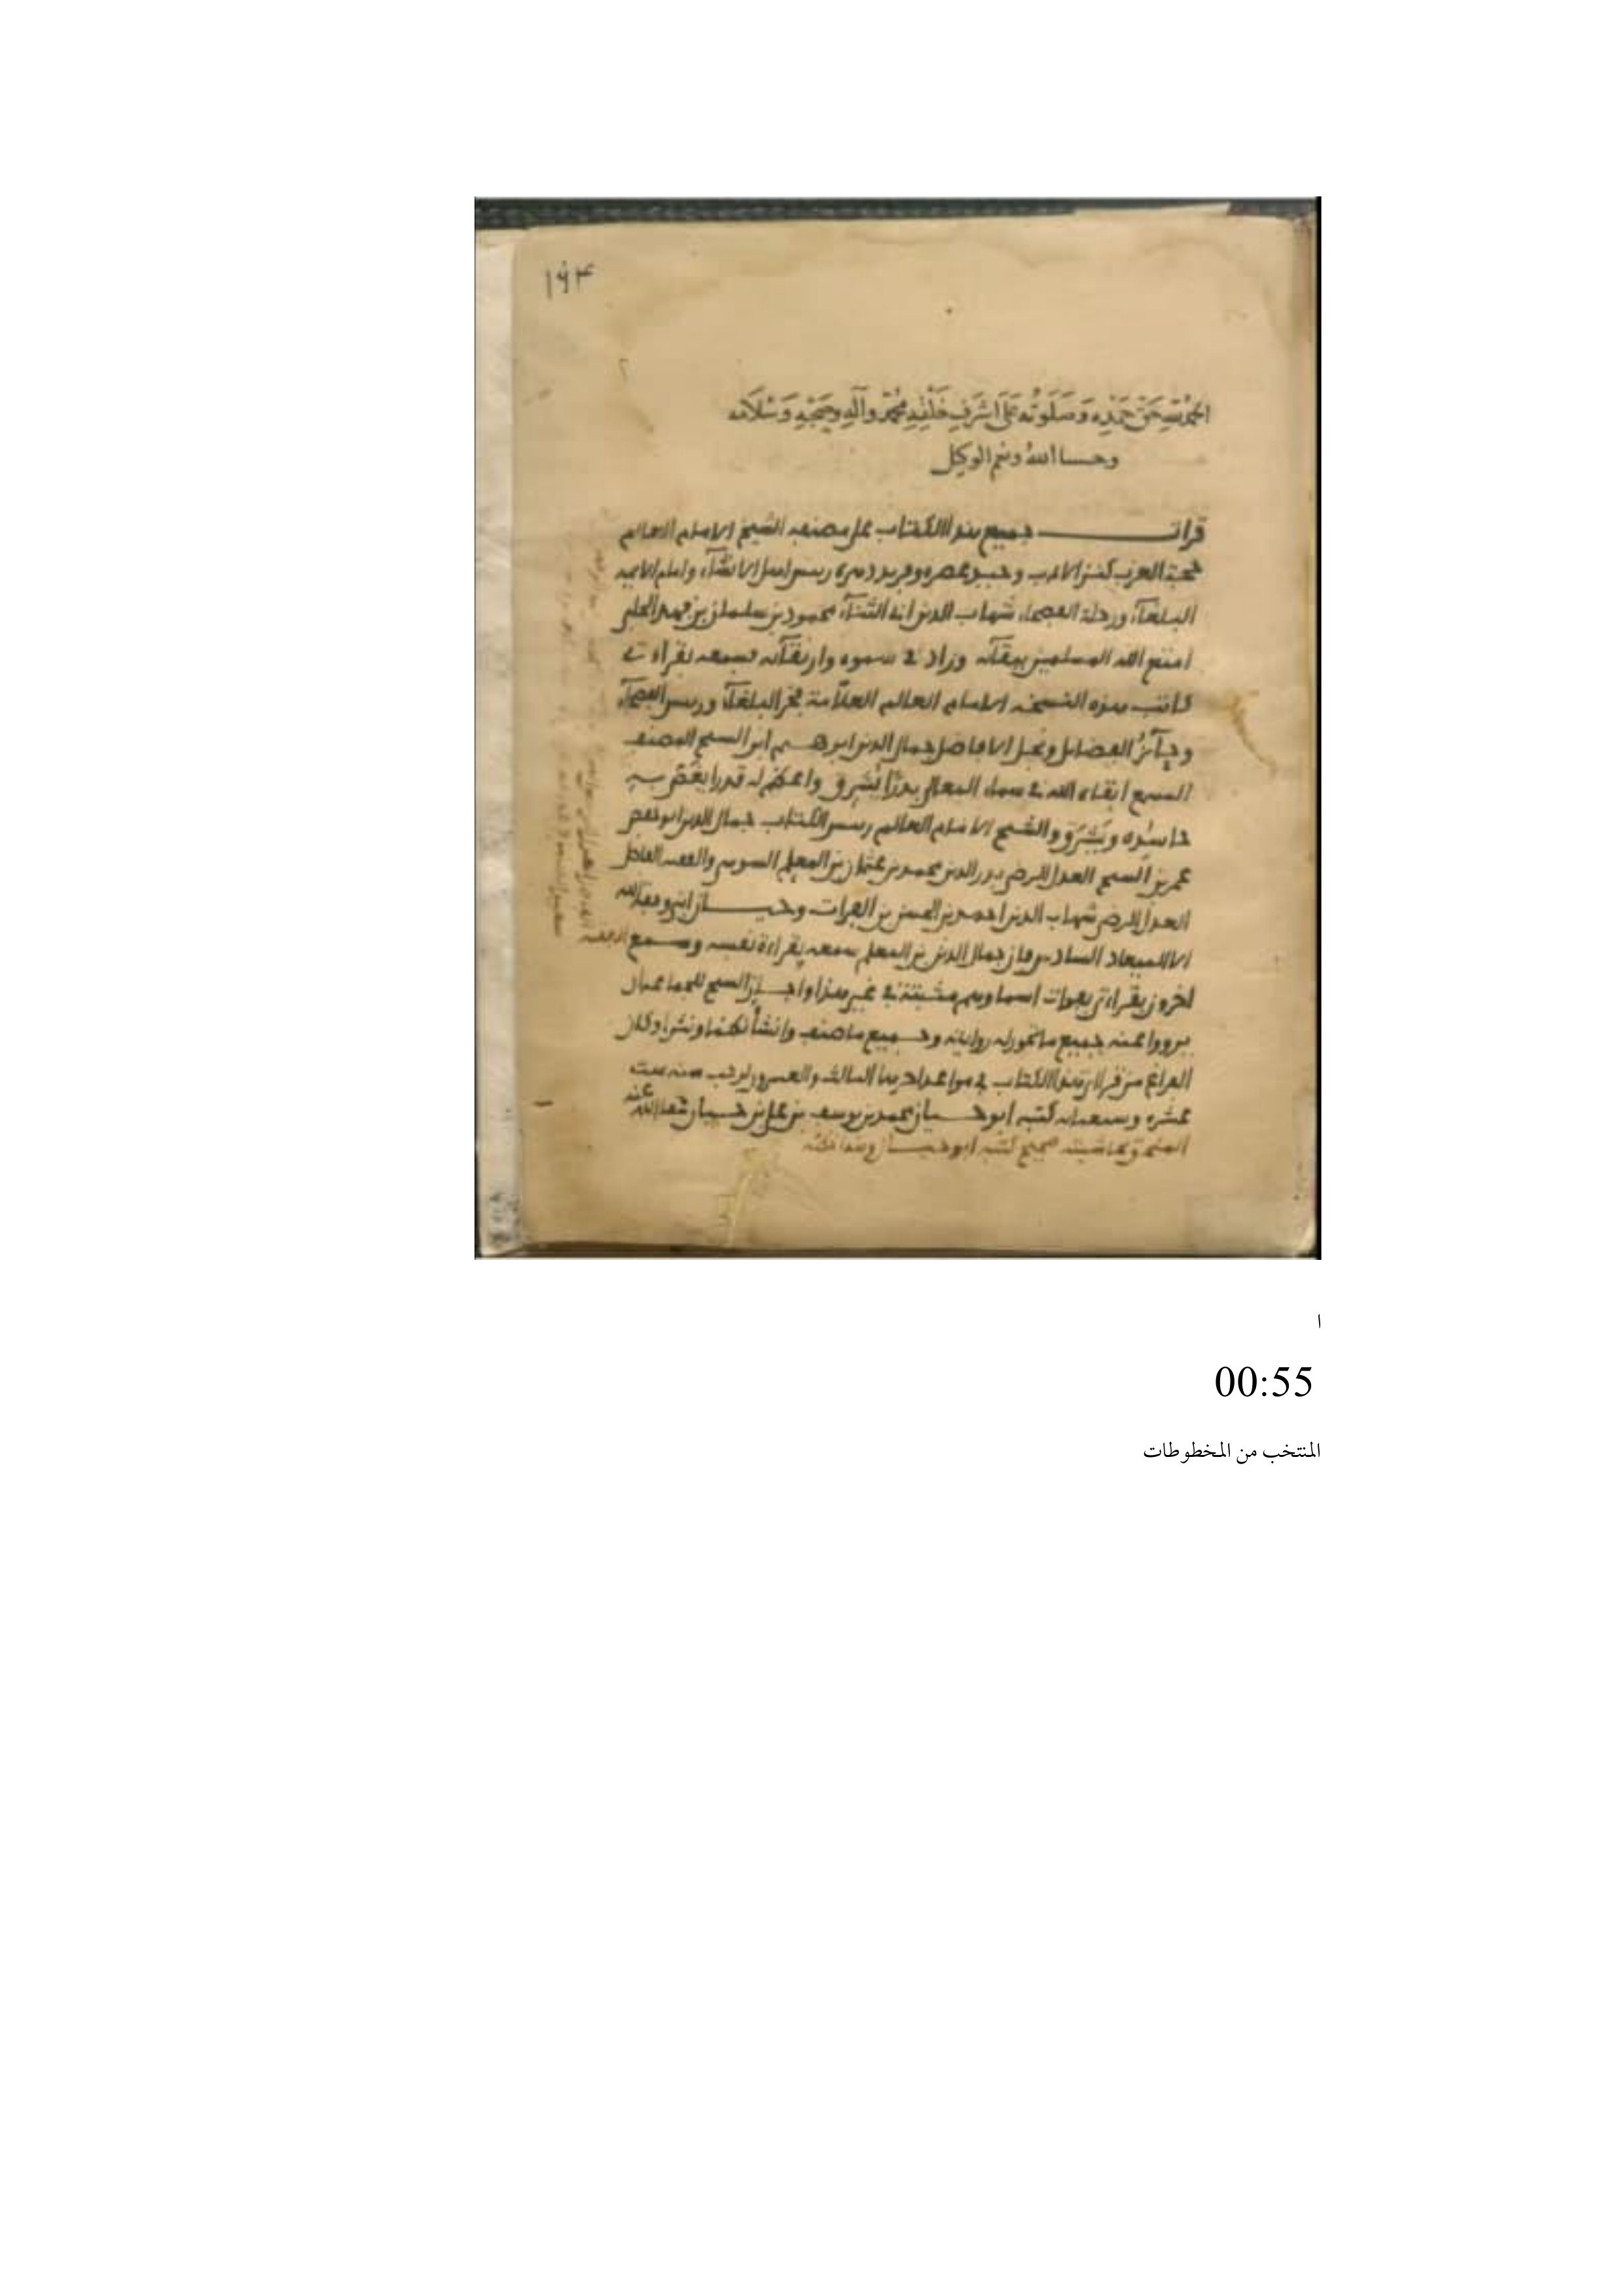 ١٦٤
الحمد لله حق حمده وصلوته على اشرف خلقه محمد وآله وصحبه وسلامه
وحسبنا الله ونعم الوكيل
قرات جميع هذا الكتاب على مصنفه الشيخ الامام العالم
حجة العرب كنز الادب وحيد عصره وفريد دهره رييس اهل الانشآء وامام الايمة
البلغآء ورحلة الفصحاء شهاب الدين ابى الثنآء محمود بن سلمان بن فهد الحلبي
امتع الله المسلمين ببقآئه وزاد في سموه وارتقآئه فسمعه بقراءتي
كاتب هذه النسخه الامام العالم العلامة فخر البلغآء ورييس الفصحآء
وحآئز الفضايل ونجل الافاضل جمال الدين ابرهيم ابن الشيخ المصنف
المسمع ابقاه الله في سماء المعالي بدرًا يشرق واعظم له قدرا يغص به
حاسده ويشرق والشيخ الامام العالم رييس الكتاب جمال الدين ابو حفص
عمر بن الشيخ العدل الرضى بدر الدين محمد بن عثمان بن المعلم والفقيه الفاضل
العدل الرضى شهاب الدين احمد بن الحسن بن الفرات وحيان ابنى وفقه الله
الا الميعاد السادس فان جمال الدين بن المعلم سمعه بقراءة نفسه وسمع
اخرون بقراءتي بفوات اسماوهم مثبتة في غير هذا واجاز الشيخ للجماعة ان
يرووا عنه جميع ما تجوز له روايته وجميع ما صنف وانشأ نظما ونثرا وكان
الفراغ من قراءة هذا الكتاب في مواعد اخرها الثالث والعشرون لرجب سنة ست
عشره وسبعمائه كتبه ابو حيان محمد بن يوسف بن على بن حيان عفا الله عنه
صحيح كتبه ابو حيان
ا
00:55
المنتخب من المخطوطات